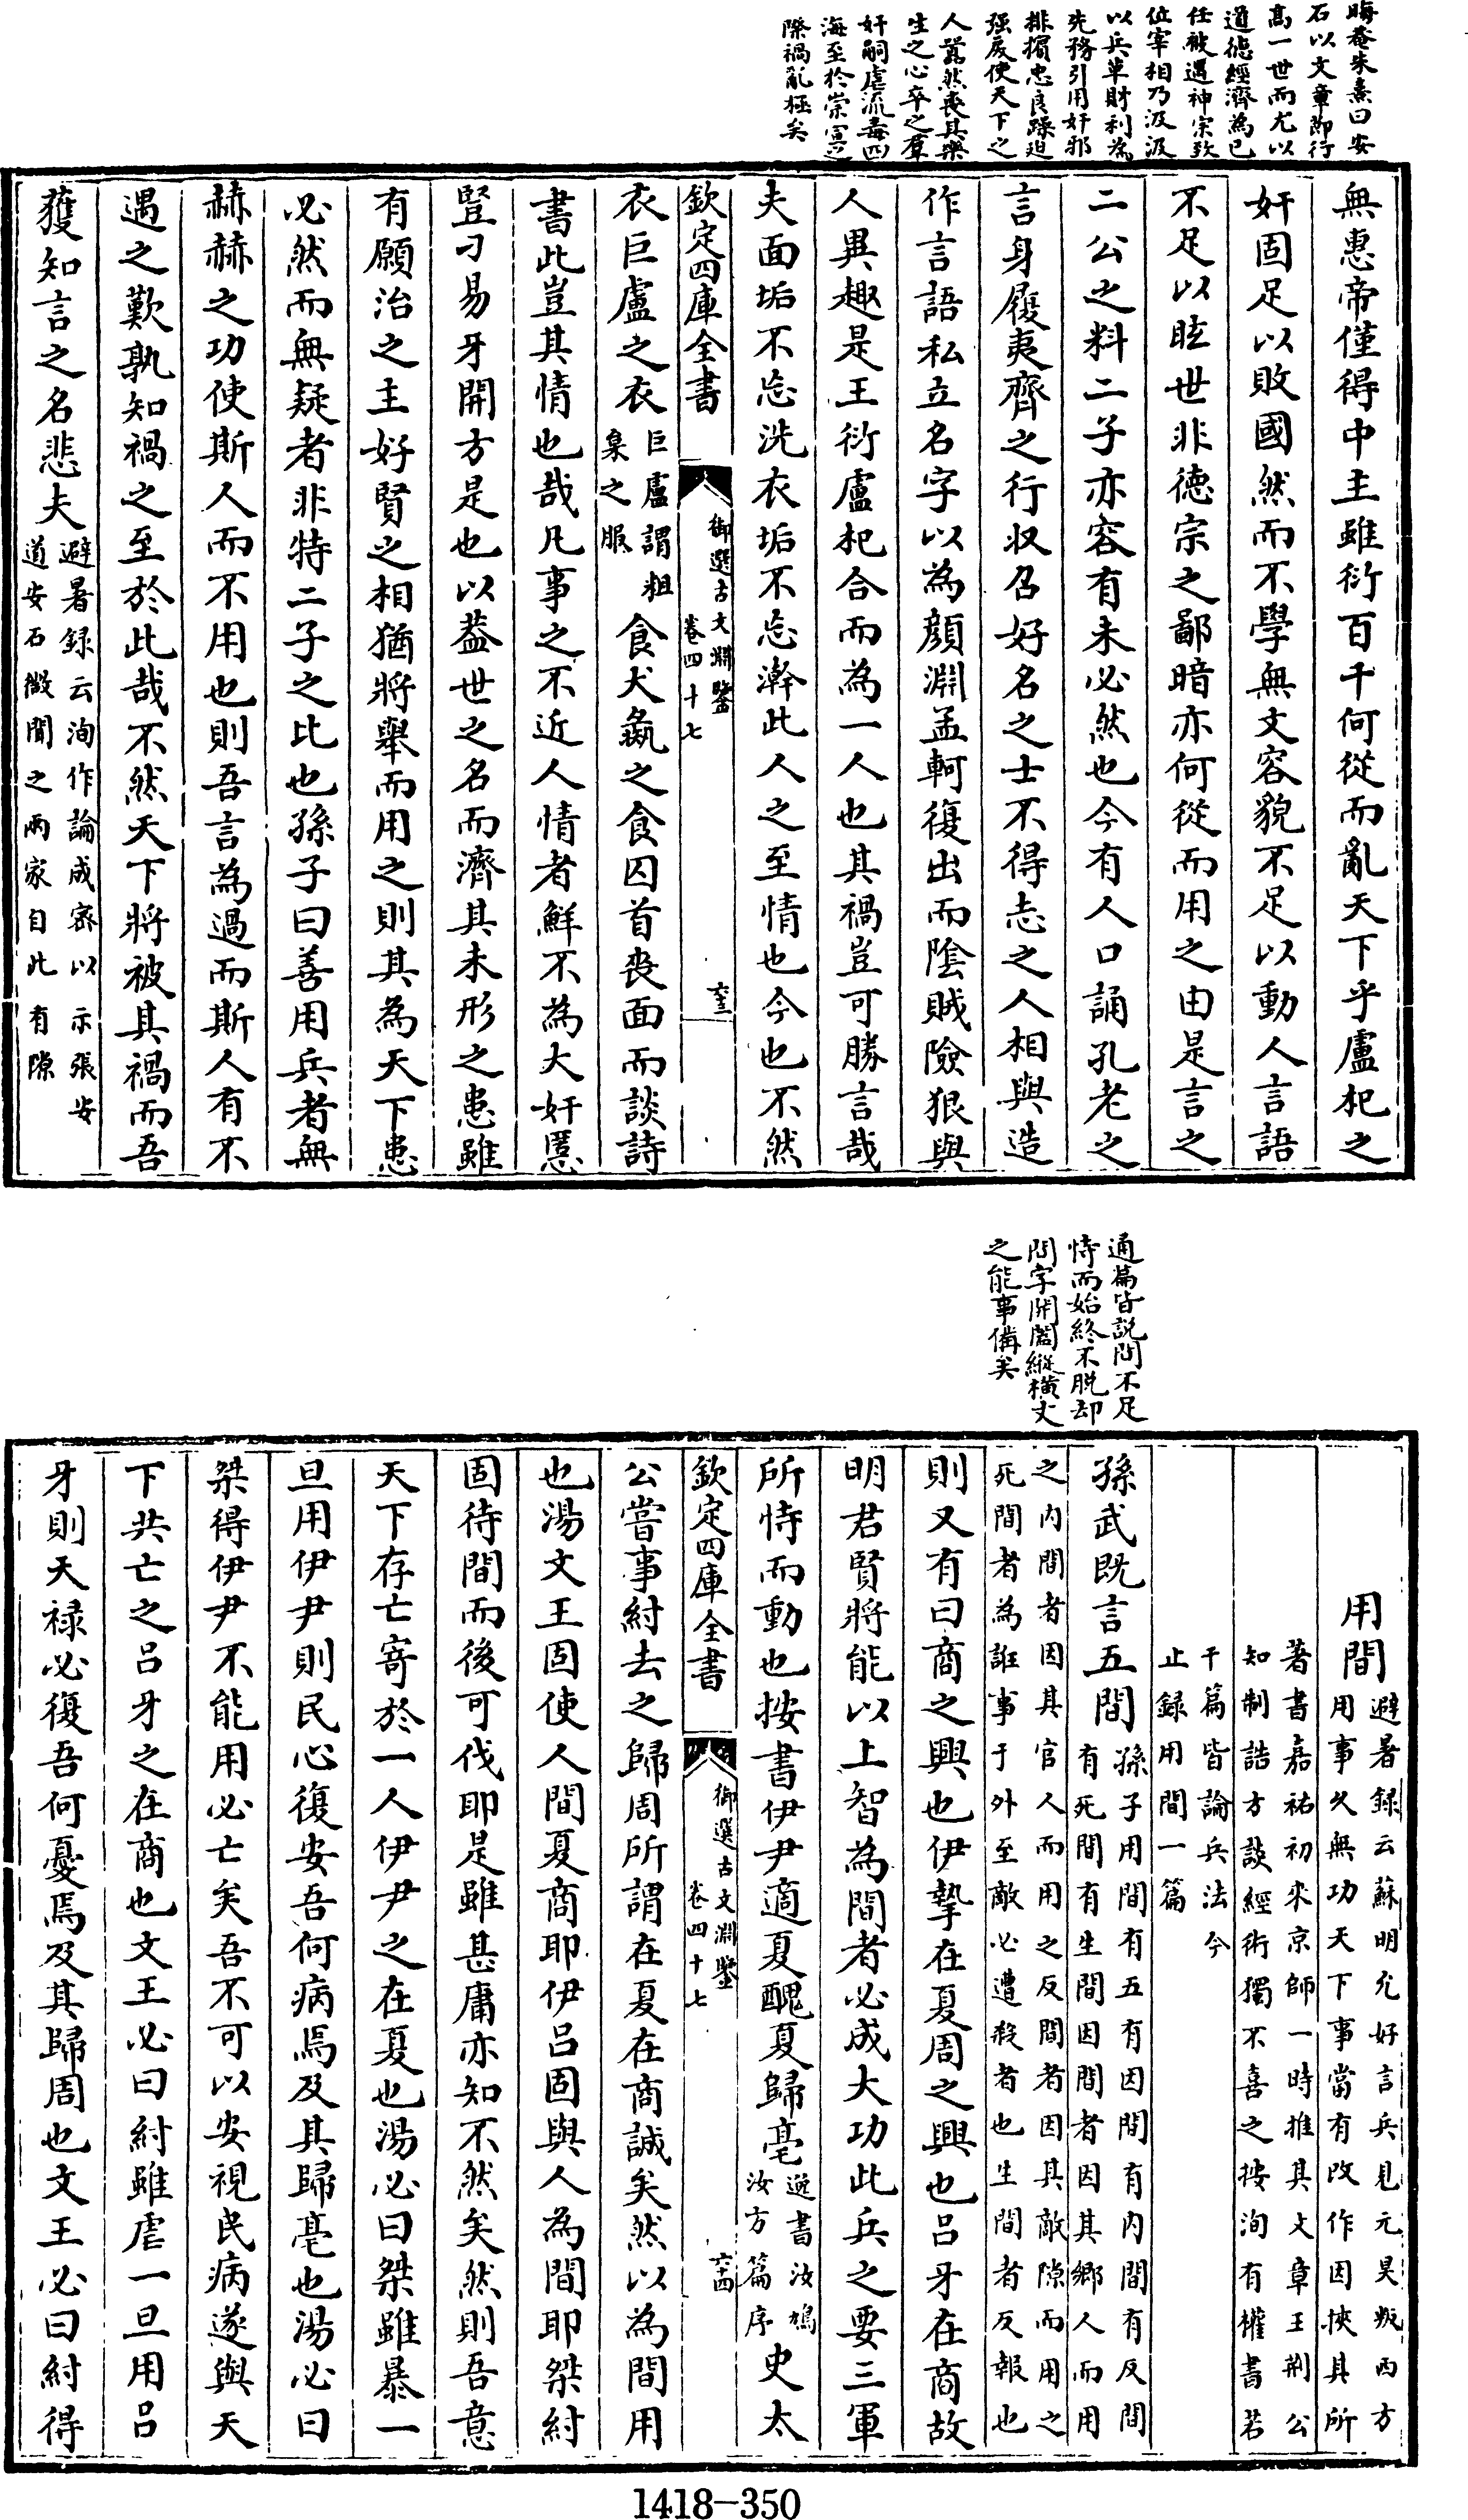 晦菴朱熹曰安
石以文章節行
髙一世而尤以
道徳經濟為已
任被遇神宗致
位宰相乃汲汲
以兵革財利為
先務引用奸邪
排擯忠良躁迫
强戾使天下之
人囂然喪其樂
生之心卒之羣
奸嗣虐流毒四
海至於崇寧之
際禍亂極矣
無惠帝僅得中主雖衍百千何從而亂天下乎盧杞之
奸固足以敗國然而不學無文容貌不足以動人言語
不足以眩世非徳宗之鄙暗亦何從而用之由是言之
二公之料二子亦容有未必然也今有人口誦孔老之
言身履夷齊之行収召好名之士不得志之人相與造
作言語私立名字以為顔淵孟軻復出而隂賊險狠與
人異趣是王衍盧杞合而為一人也其禍豈可勝言哉
夫面垢不忘洗衣垢不忘澣此人之至情也今也不然
欽定四庫全書
御選古文淵鑒
卷四十七
六三
衣巨盧之衣
巨盧謂粗
臬之服
食犬彘之食囚首喪面而談詩
書此豈其情也哉凡事之不近人情者鮮不為大奸慝
豎刁易牙開方是也以葢世之名而濟其未形之患雖
有願治之主好賢之相猶將舉而用之則其為天下患
必然而無疑者非特二子之比也孫子曰善用兵者無
赫赫之功使斯人而不用也則吾言為過而斯人有不
遇之歎孰知禍之至於此哉不然天下將被其禍而吾
獲知言之名悲夫
避暑録云洵作論成密以示張安
道安石微聞之兩家自此有隙
通篇皆説間不足
恃而始終不脱却
間字開闔縱横文
之能事備矣
用間
避暑録云蘇明允好言兵見元昊叛西方
用事久無功天下事當有改作因挾其所
著書嘉祐初來京師一時推其文章王荆公
知制誥方談經術獨不喜之按洵有權書若
干篇皆論兵法今
止録用間一篇
孫武既言五間
孫子用間有五有因間有内間有反間
有死間有生間因間者因其鄉人而用
之内間者因其官人而用之反間者因其敵隙而用之
死間者為誑事于外至敵必遭殺者也生間者反報也
則又有曰商之興也伊摯在夏周之興也吕牙在商故
明君賢將能以上智為間者必成大功此兵之要三軍
所恃而動也按書伊尹適夏醜夏歸亳
逸書汝鳩
汝方篇序
史太
欽定四庫全書
御選古文淵鑒
卷四十七
六四
公嘗事紂去之歸周所謂在夏在商誠矣然以為間用
也湯文王固使人間夏商耶伊吕固與人為間耶桀紂
固待間而後可伐耶是雖甚庸亦知不然矣然則吾意
天下存亡寄於一人伊尹之在夏也湯必曰桀雖暴一
旦用伊尹則民心復安吾何病焉及其歸亳也湯必曰
桀得伊尹不能用必亡矣吾不可以安視民病遂與天
下共亡之吕牙之在商也文王必曰紂雖虐一旦用吕
牙則天禄必復吾何憂焉及其歸周也文王必曰紂得
1418-350